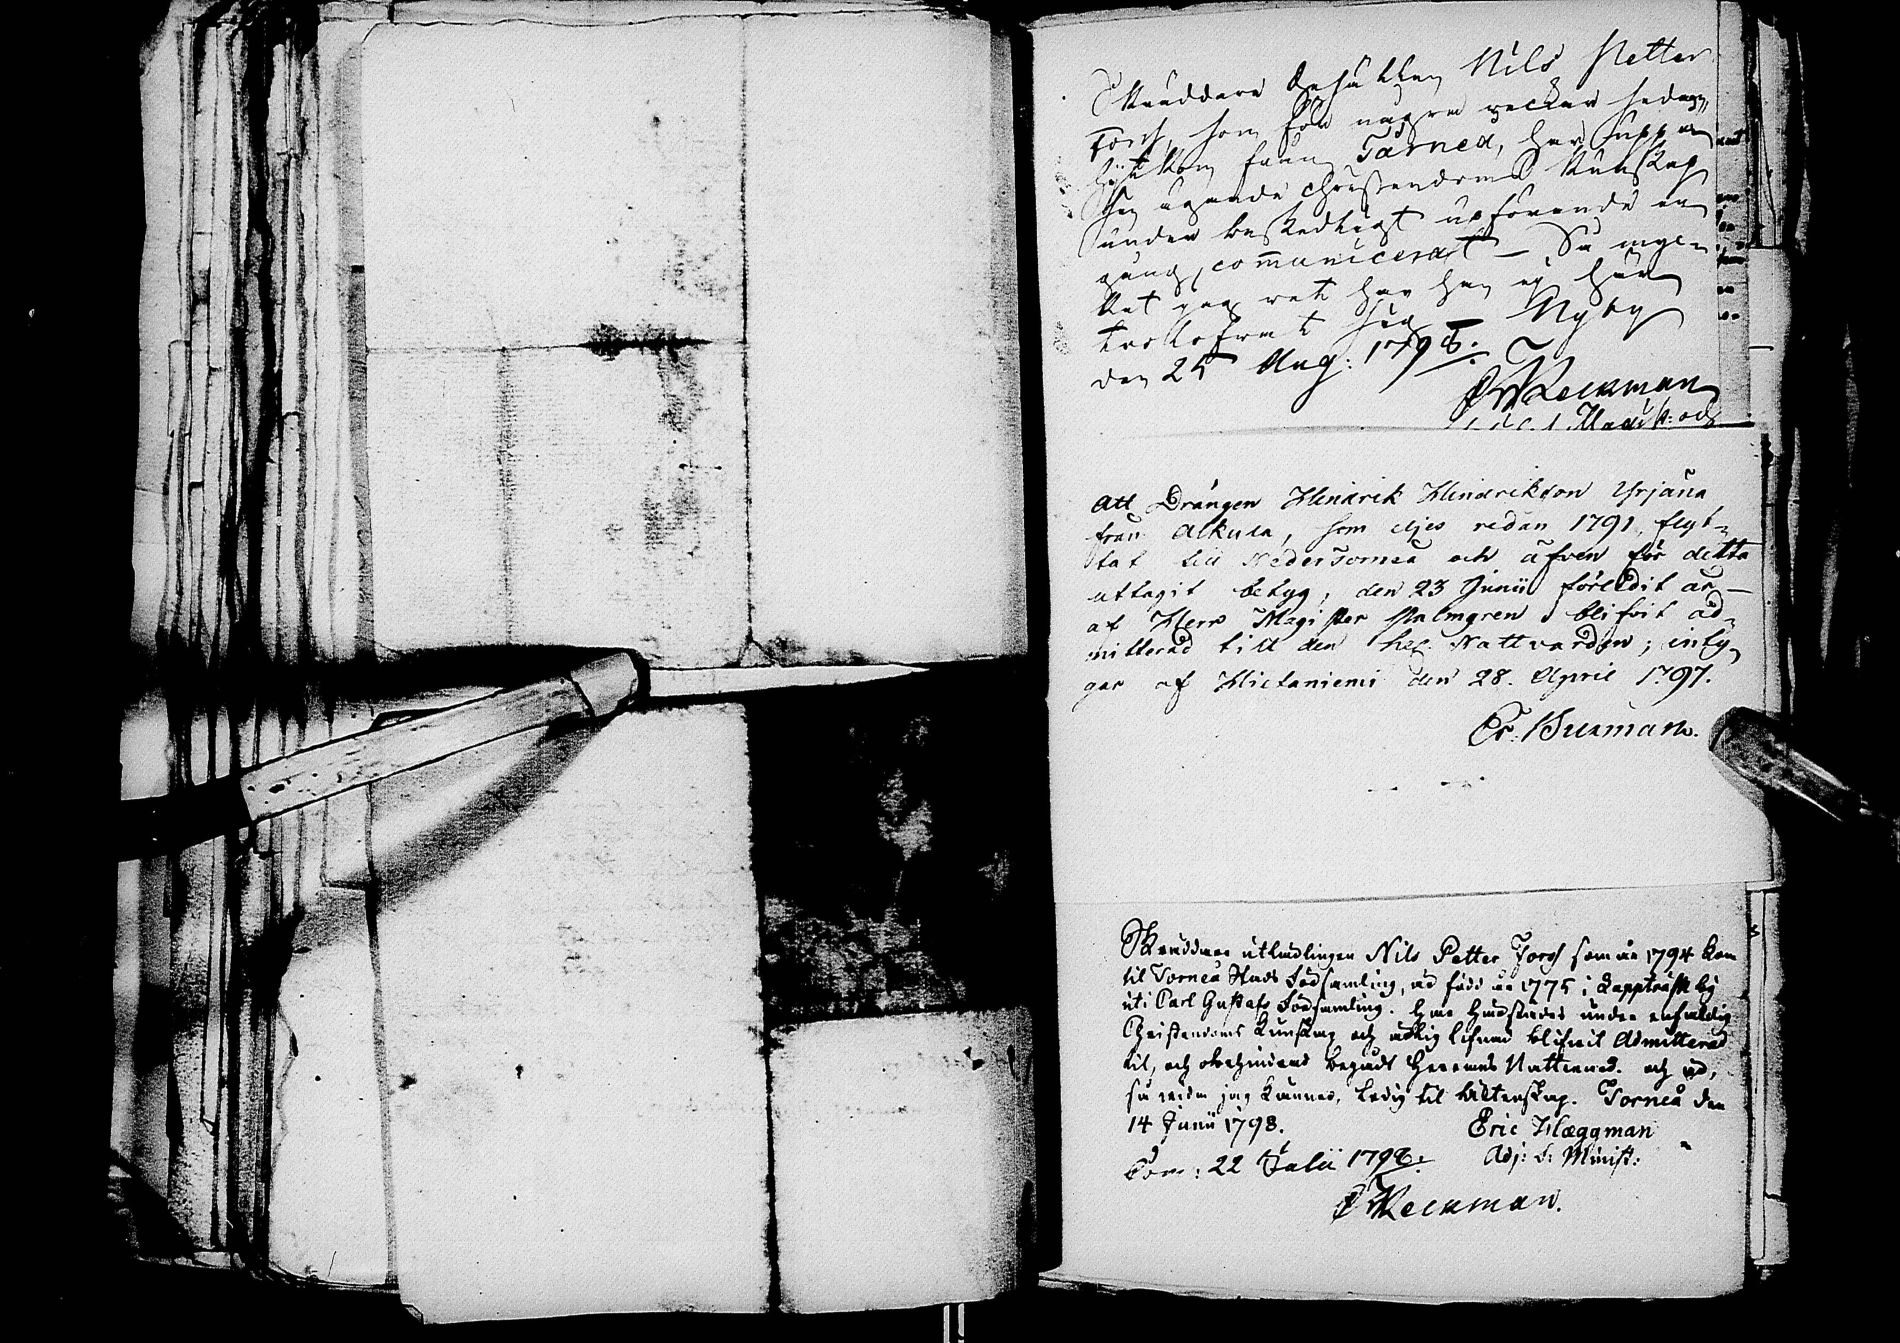 Skräddare Gesällen Nils Petter
Fors, som för några veckor sedan
hitkom från Tårneå, har uppå
ägande christendoms kunskap
under beskedligt upförande en
gång communicerat – Så myc-
ket jag vet har han ej här
trolofvat sig – Nyby
den 25 Aug: 1798.
Att Drängen Hindrik Hindrikson Yrjänä
från Alkula, som eljes redan 1791 flyt-
tat till NederTorneå och äfven för detta
uttagit betyg, den 23 Junii förledit år –
af Herr Magister Malmgren blifvit ad-
mitterad till den hel. Nattvarden; inty-
gar af Hietaniemi den 28. April 1797.
Er. Burman.
Skräddare utlärlingen Nils Petter Fors som år 1794 kom
til Torneå Stads Församling, är född år 1775 i Lappträsk by
uti Carl Gustafs Församling. Har härstädes under enfaldig
Christendoms Kunskap och ärlig lefnad blifvit Admitterad
til, och obehindrad begådt Herrans Nattvard. och är,
så vida jag känner, ledig til äktenskap. Torneå den
14 Junii 1798.
Eric Hæggman
Adj: b: Minist:
22 Julii 1798.